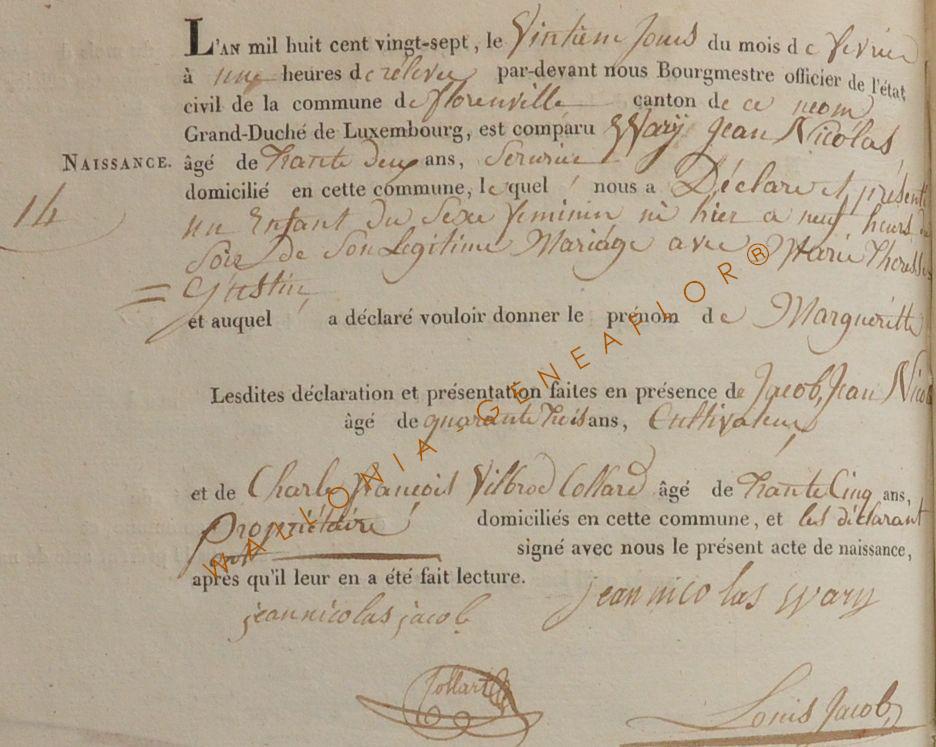 L'AN mil huit cent vingt-sept, le Vintieme Jours du mois de fevrier
à une heures de rélevée par-devant nous Bourgmestre officier de l'état
civil de la commune de florenville canton de ce nom
Grand-Duché de Luxembourg, est comparu Wary Jean Nicolas
NAISSANCE. âgé de trante deux ans, Serurier
domicilié en cette commune, lequel nous a Déclare et présenté
14
un Enfant du Sexe feminin né hier a neuf heurs du
Soir de Son Legitime Mariage avec Marie Theresse
Gustin
et auquel a déclaré vouloir donner le prénom de Marguéritte
Lesdites déclaration et présentation faites en présence de Jacob, Jean Nicolas
âgé de quarante trois ans, Cultivateur
et de Charle françois Vilbrod Collard âgé de trante Cinq ans,
Propriétaire domiciliés en cette commune, et les déclarant
ont signé avec nous le présent acte de naissance,
après qu'il leur en a été fait lecture.
jean nicolas jacob jean nicolas wary
Collard
Louis Jacob
WALLONIA GENEAFLOR®